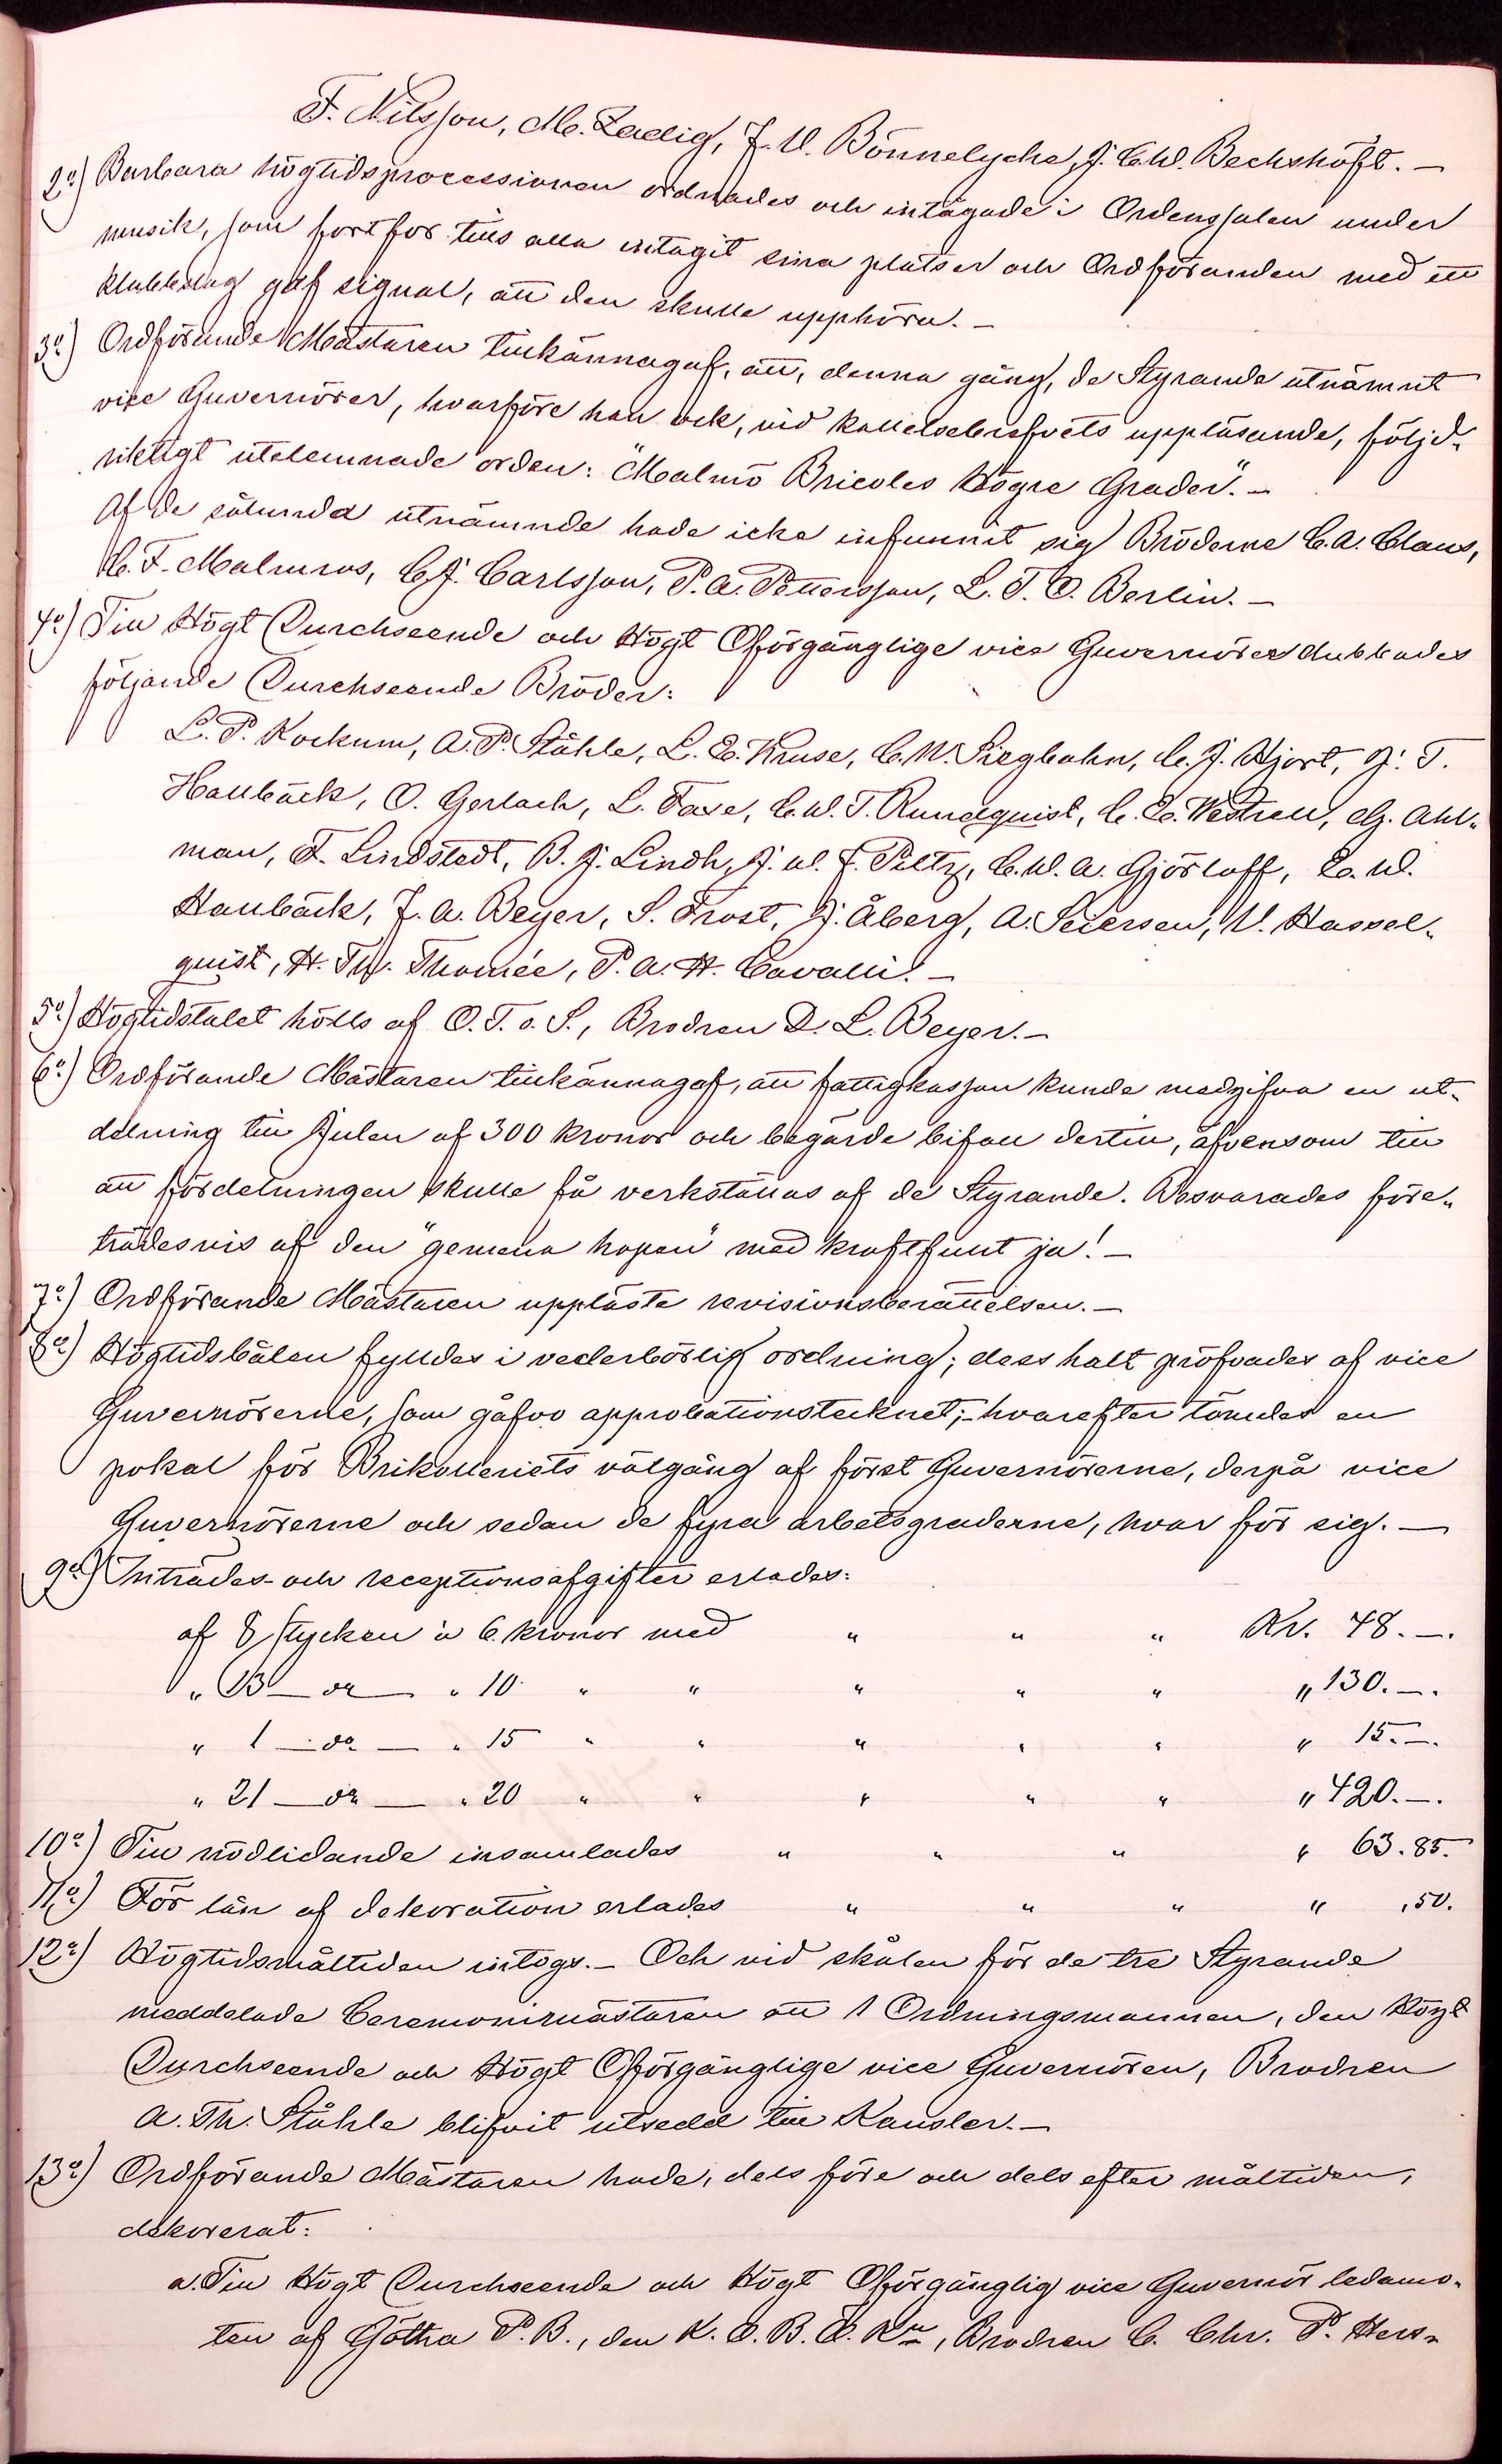 F. Nilsson, M. Zadig, F. V. Bönnelyche, J. C. W. Bechshöft. —
2o) Barbara högtidsprocessionen ordnades och intågade i Ordenssalen under
musik, som fortfor tills alla intagit sina platser och Ordföranden med ett
klubbslag gaf signal, att den skulle upphöra. —
3o) Ordförande Mästaren tillkännagaf, att, denna gång, de Styrande utnämnt
vice Guvernörer, hvarföre han ock, vid kallelsebrefvets uppläsande, följd-
riktigt utelemnade orden: "Malmö Bricoles Högre Grader". —
Af de sålunda utnämnde hade icke infunnit sig Bröderne C. A. Claus,
C. F. Malmros, C. J. Carlsson, P. A. Pettersson, L. T. O. Berlin. —
4o) Till Högt Durchseende och Högt Oförgänglige vice Guvernörer dubbades
följande Durchseende Bröder:
L. P. Kockum, A. P. Ståhle, L. E. Kruse, C. W. Siegbahn, C. J. Hjort, J. T.
Hallbäck, O. Gerlach, L. Faxe, C. W. T. Rundquist, C. E. Westrell, G. Ahl-
man, F. Lindstedt, B. J. Lindh, J. W. F. Piltz, C. W. A. Gjörloff, E. W.
Hallbäck, F. A. Beyer, S. Frost, J. Åberg, A. Seiersen, V. Hassel-
quist, H. Th. Thomée, P. A. H. Cavalli. —
5o) Högtidstalet hölls af O. T. o. S., Brodren D. L. Beyer. —
6o) Ordförande Mästaren tillkännagaf, att fattigkassan kunde medgifva en ut-
delning till Julen af 300 kronor och begärde bifall dertill, äfvensom till
att fördelningen skulle få verkställas af de Styrande. Besvarades före-
trädesvis af den "gemena hopen" med kraftfullt ja! —
7o) Ordförande Mästaren uppläste revisionsberättelsen. —
8o) Högtidsbålen fylldes i vederbörlig ordning; dess halt pröfvades af vice
Guvernörerne, som gåfvo approbationstecknet; – hvarefter tömdes en
pokal för Brikolleriets välgång af först Guvernörerne, derpå vice
Guvernörerne och sedan de fyra arbetsgraderne, hvar för sig. —
9o) Inträdes- och receptionsafgifter erlades:
af 8 stycken à 6 kronor med " " " Kr. 48. —.
" 13 — do — " 10 " " " " " " 130. —.
" 1 — do — " 15 " " " " " " 15. —.
" 21 — do — " 20 " " " " " " 420. —.
10o) Till nödlidande insamlades " " " " 63. 85.
11o) För lån af dekoration erlades " " " " , 50.
12o) Högtidsmåltiden intogs. – Och vid skålen för de tre Styrande
meddelade Ceremonimästaren att 1 Ordningsmannen, den Högt
Durchseende och Högt Oförgänglige vice Guvernören, Brodren
A. Th. Ståhle blifvit utsedd till Kansler. —
13o) Ordförande Mästaren hade, dels före och dels efter måltiden,
dekorerat:
a. Till Högt Durchseende och Högt Oförgänglig vice Guvernör ledamo-
ten af Götha P. B., den K. O. B. O. Rn, Brodren C. Chr. P. Hess-